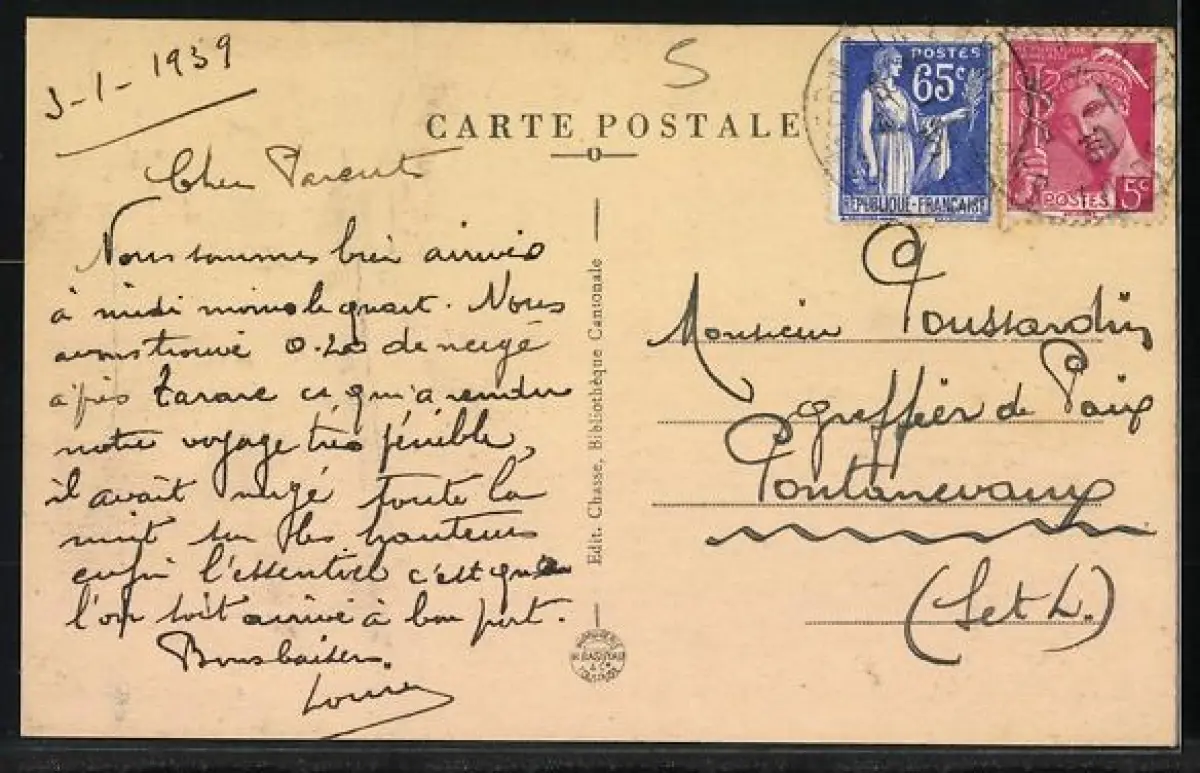 3-1-1939
S
CARTE POSTALE
POSTES
65c
REPUBLIQUE-FRANÇAISE
REPUBLIQUE
POSTES 5c
Chers Parents
Nous sommes bien arrivés
à midi moins le quart. Nous
avons trouvé 0.20 de neige
après Tarare ce qui a rendu
notre voyage très pénible,
il avait neigé toute la
nuit sur les hauteurs
enfin l'essentiel c'est que
l'on soit arrivé à bon port.
Bons baisers.
Edit. Chasse, Bibliothèque Cantonale
Monsieur Poussardin
greffier de Paix
Pontanevaux
(S et L.)